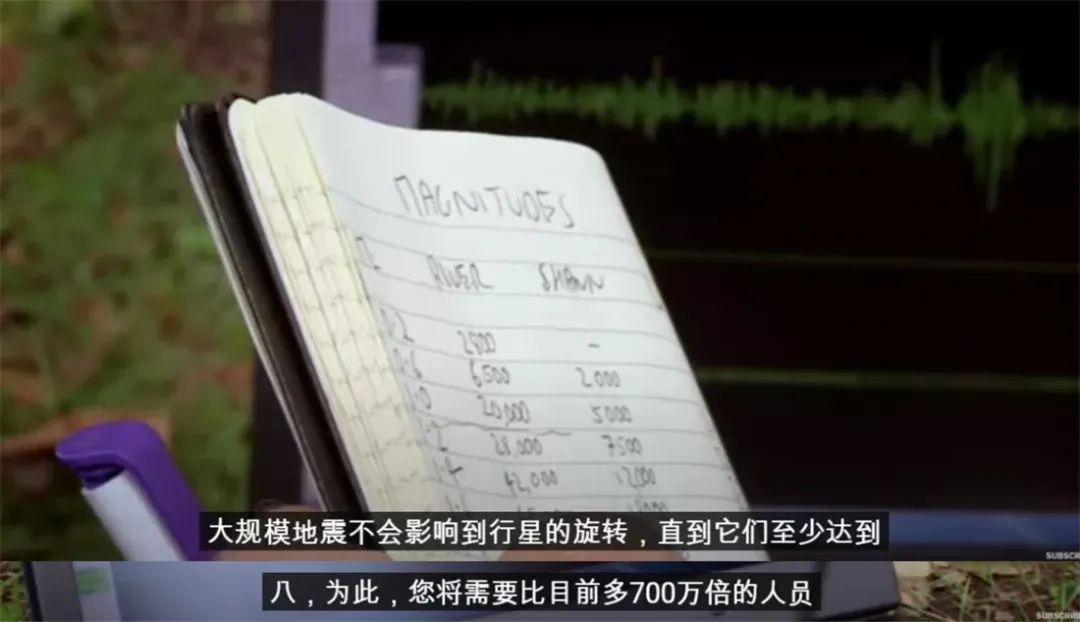 MAGNITUDES
RIVER SHAWN
2800 -
6500 2000
20,000 5000
28,000 7500
42,000 12000
大规模地震不会影响到行星的旋转，直到它们至少达到
SUBSCRIB
八，为此，您将需要比目前多700万倍的人员
SUBSCRIBE